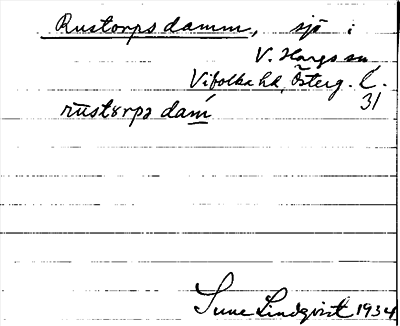 Rustorps damm, sjö i
V. Hargs sn
Vifolka hd, Österg. l.
31
rustorpa dam̄
Sune Lindqvist 1934